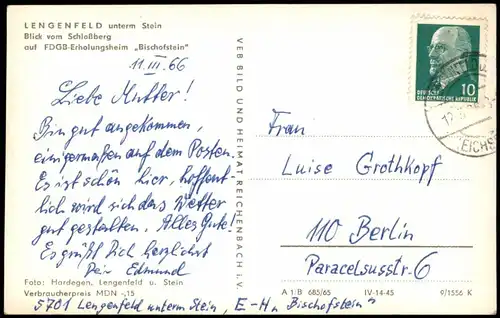 LENGENFELD unterm Stein
Blick vom Schloßberg
auf FDGB-Erholungsheim „Bischofstein"
11. III. 66
Liebe Mutter!
Bin gut angekommen,
einigermaßen auf dem Posten.
Es ist schön hier, hoffent-
lich wird sich das Wetter
gut gestalten. Alles Gute!
Es grüßt Dich herzlichst
Dein Edmund
Foto: Hardegen, Lengenfeld u. Stein
Verbraucherpreis MDN -,15
5701 Lengenfeld unterm Stein, E-H „Bischofstein"
VEB BILD UND HEIMAT REICHENBACH i. V.
10
DEUTSCHE
DEMOKRATISCHE REPUBLIK
Frau
Luise Grothkopf
110 Berlin
Paracelsusstr. 6
A 1/B 685/65 IV-14-45 9/1556 K